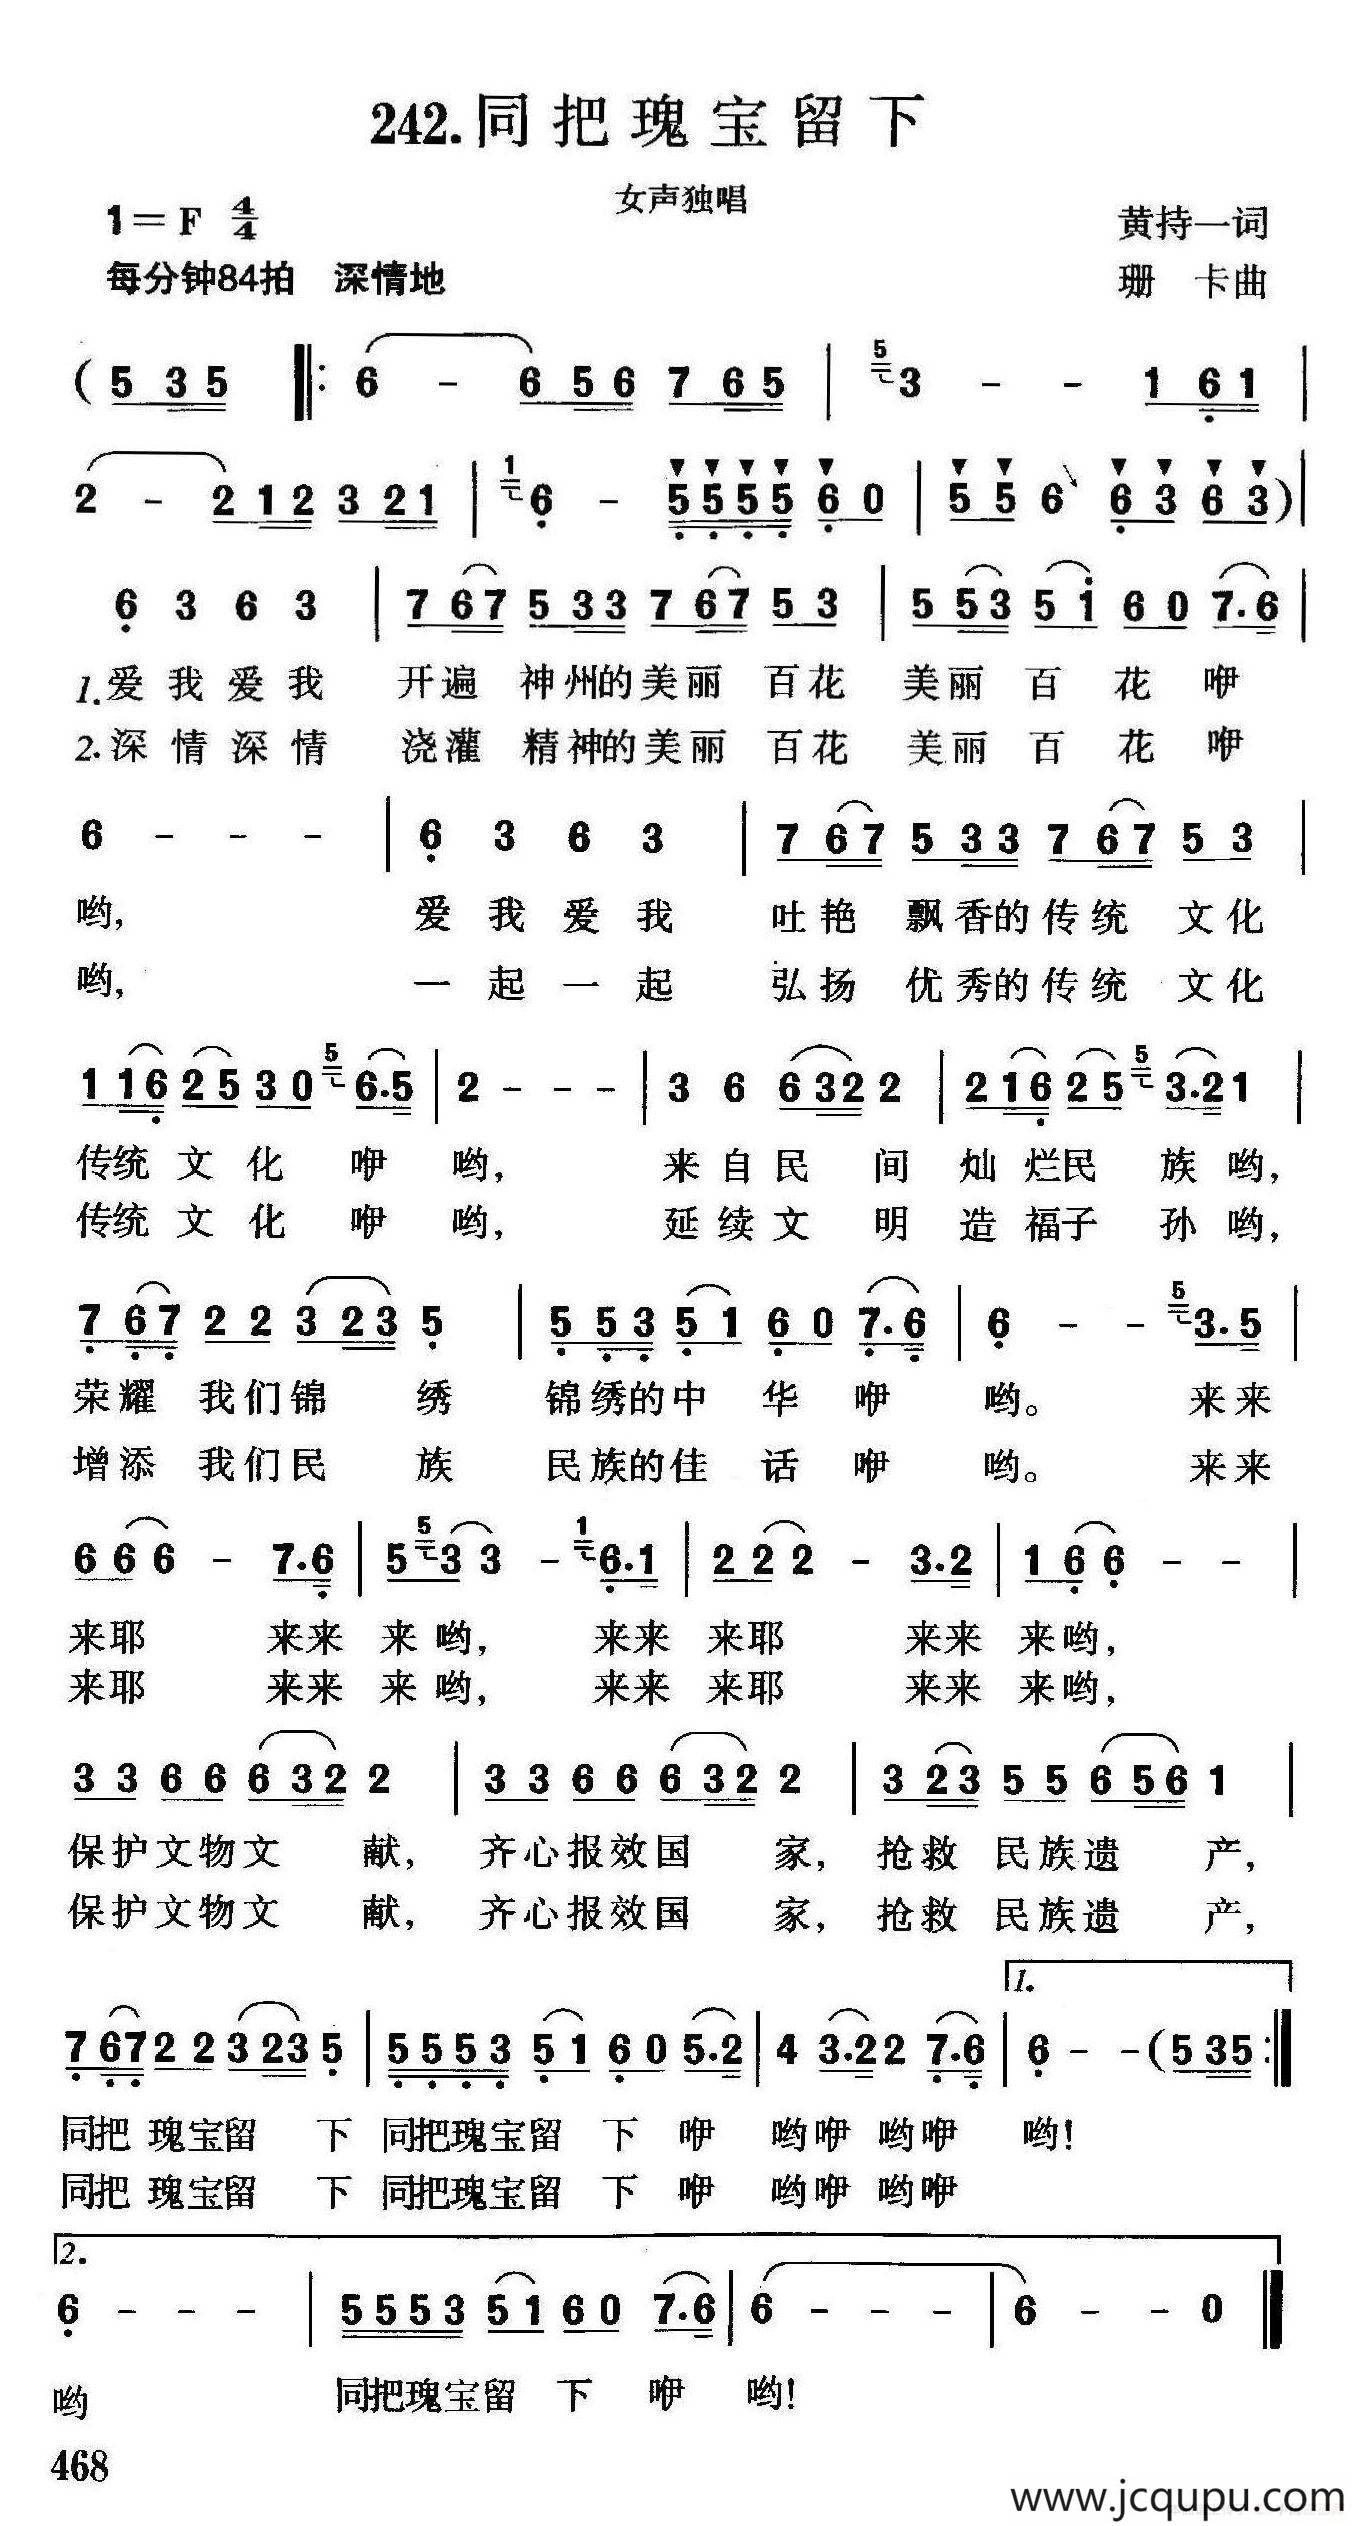 242.同把瑰宝留下
女声独唱
1=F 4/4
黄持一词
每分钟84拍 深情地
珊 卡曲
(5 3 5 6 - 6 5 6 7 6 5 5 3 - - 1 6 1
2 - 2 1 2 3 2 1 1 6 - 5 5 5 5 6 0 5 5 6 6 3 6 3)
6 3 6 3 7 6 7 5 3 3 7 6 7 5 3 5 5 3 5 1 6 0 7.6
1.爱我爱我 开遍 神州的美丽 百花 美丽 百 花 咿
2.深情深情 浇灌 精神的美丽 百花 美丽 百 花 咿
6 - - - 6 3 6 3 7 6 7 5 3 3 7 6 7 5 3
哟, 爱我爱我 吐艳 飘香的传统 文化
哟, 一起一起 弘扬 优秀的传统 文化
1 1 6 2 5 3 0 5 6.5 2 - - - 3 6 6 3 2 2 2 1 6 2 5 5 3.2 1
传统 文 化 咿 哟, 来自民 间 灿 烂民 族哟,
传统 文 化 咿 哟, 延续文 明 造 福子 孙哟,
7 6 7 2 2 3 2 3 5 5 5 3 5 1 6 0 7.6 6 - - 5 3.5
荣耀 我们锦 绣 锦绣的中 华 咿 哟。 来来
增添 我们民 族 民族的佳 话 咿 哟。 来来
6 6 6 - 7.6 5 5 3 3 - 1 6.1 2 2 2 - 3.2 1 6 6 - -
来耶 来来 来哟, 来来 来耶 来来 来哟,
来耶 来来 来哟, 来来 来耶 来来 来哟,
3 3 6 6 6 3 2 2 3 3 6 6 6 3 2 2 3 2 3 5 5 6 5 6 1
保护文物文 献, 齐心报效国 家, 抢救 民族遗 产,
保护文物文 献, 齐心报效国 家, 抢救 民族遗 产,
1.
7 6 7 2 2 3 2 3 5 5 5 5 3 5 1 6 0 5.2 4 3.2 2 7.6 6 - - (5 3 5
同把 瑰宝留 下 同把瑰宝留 下 咿 哟咿 哟咿 哟!
同把 瑰宝留 下 同把瑰宝留 下 咿 哟咿 哟咿
2.
6 - - - 5 5 5 3 5 1 6 0 7.6 6 - - - 6 - - 0
哟 同把瑰宝留 下 咿 哟!
468
www.jcqupu.com